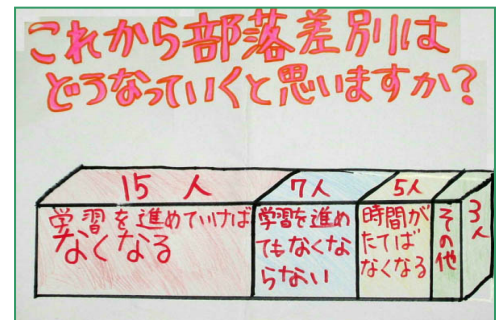 これから部落差別は
どうなっていくと思いますか?
15人
学習を進めていけば
なくなる
7人
学習を進め
てもなくな
らない
5人
時間が
たてば
なくなる
その他
3人